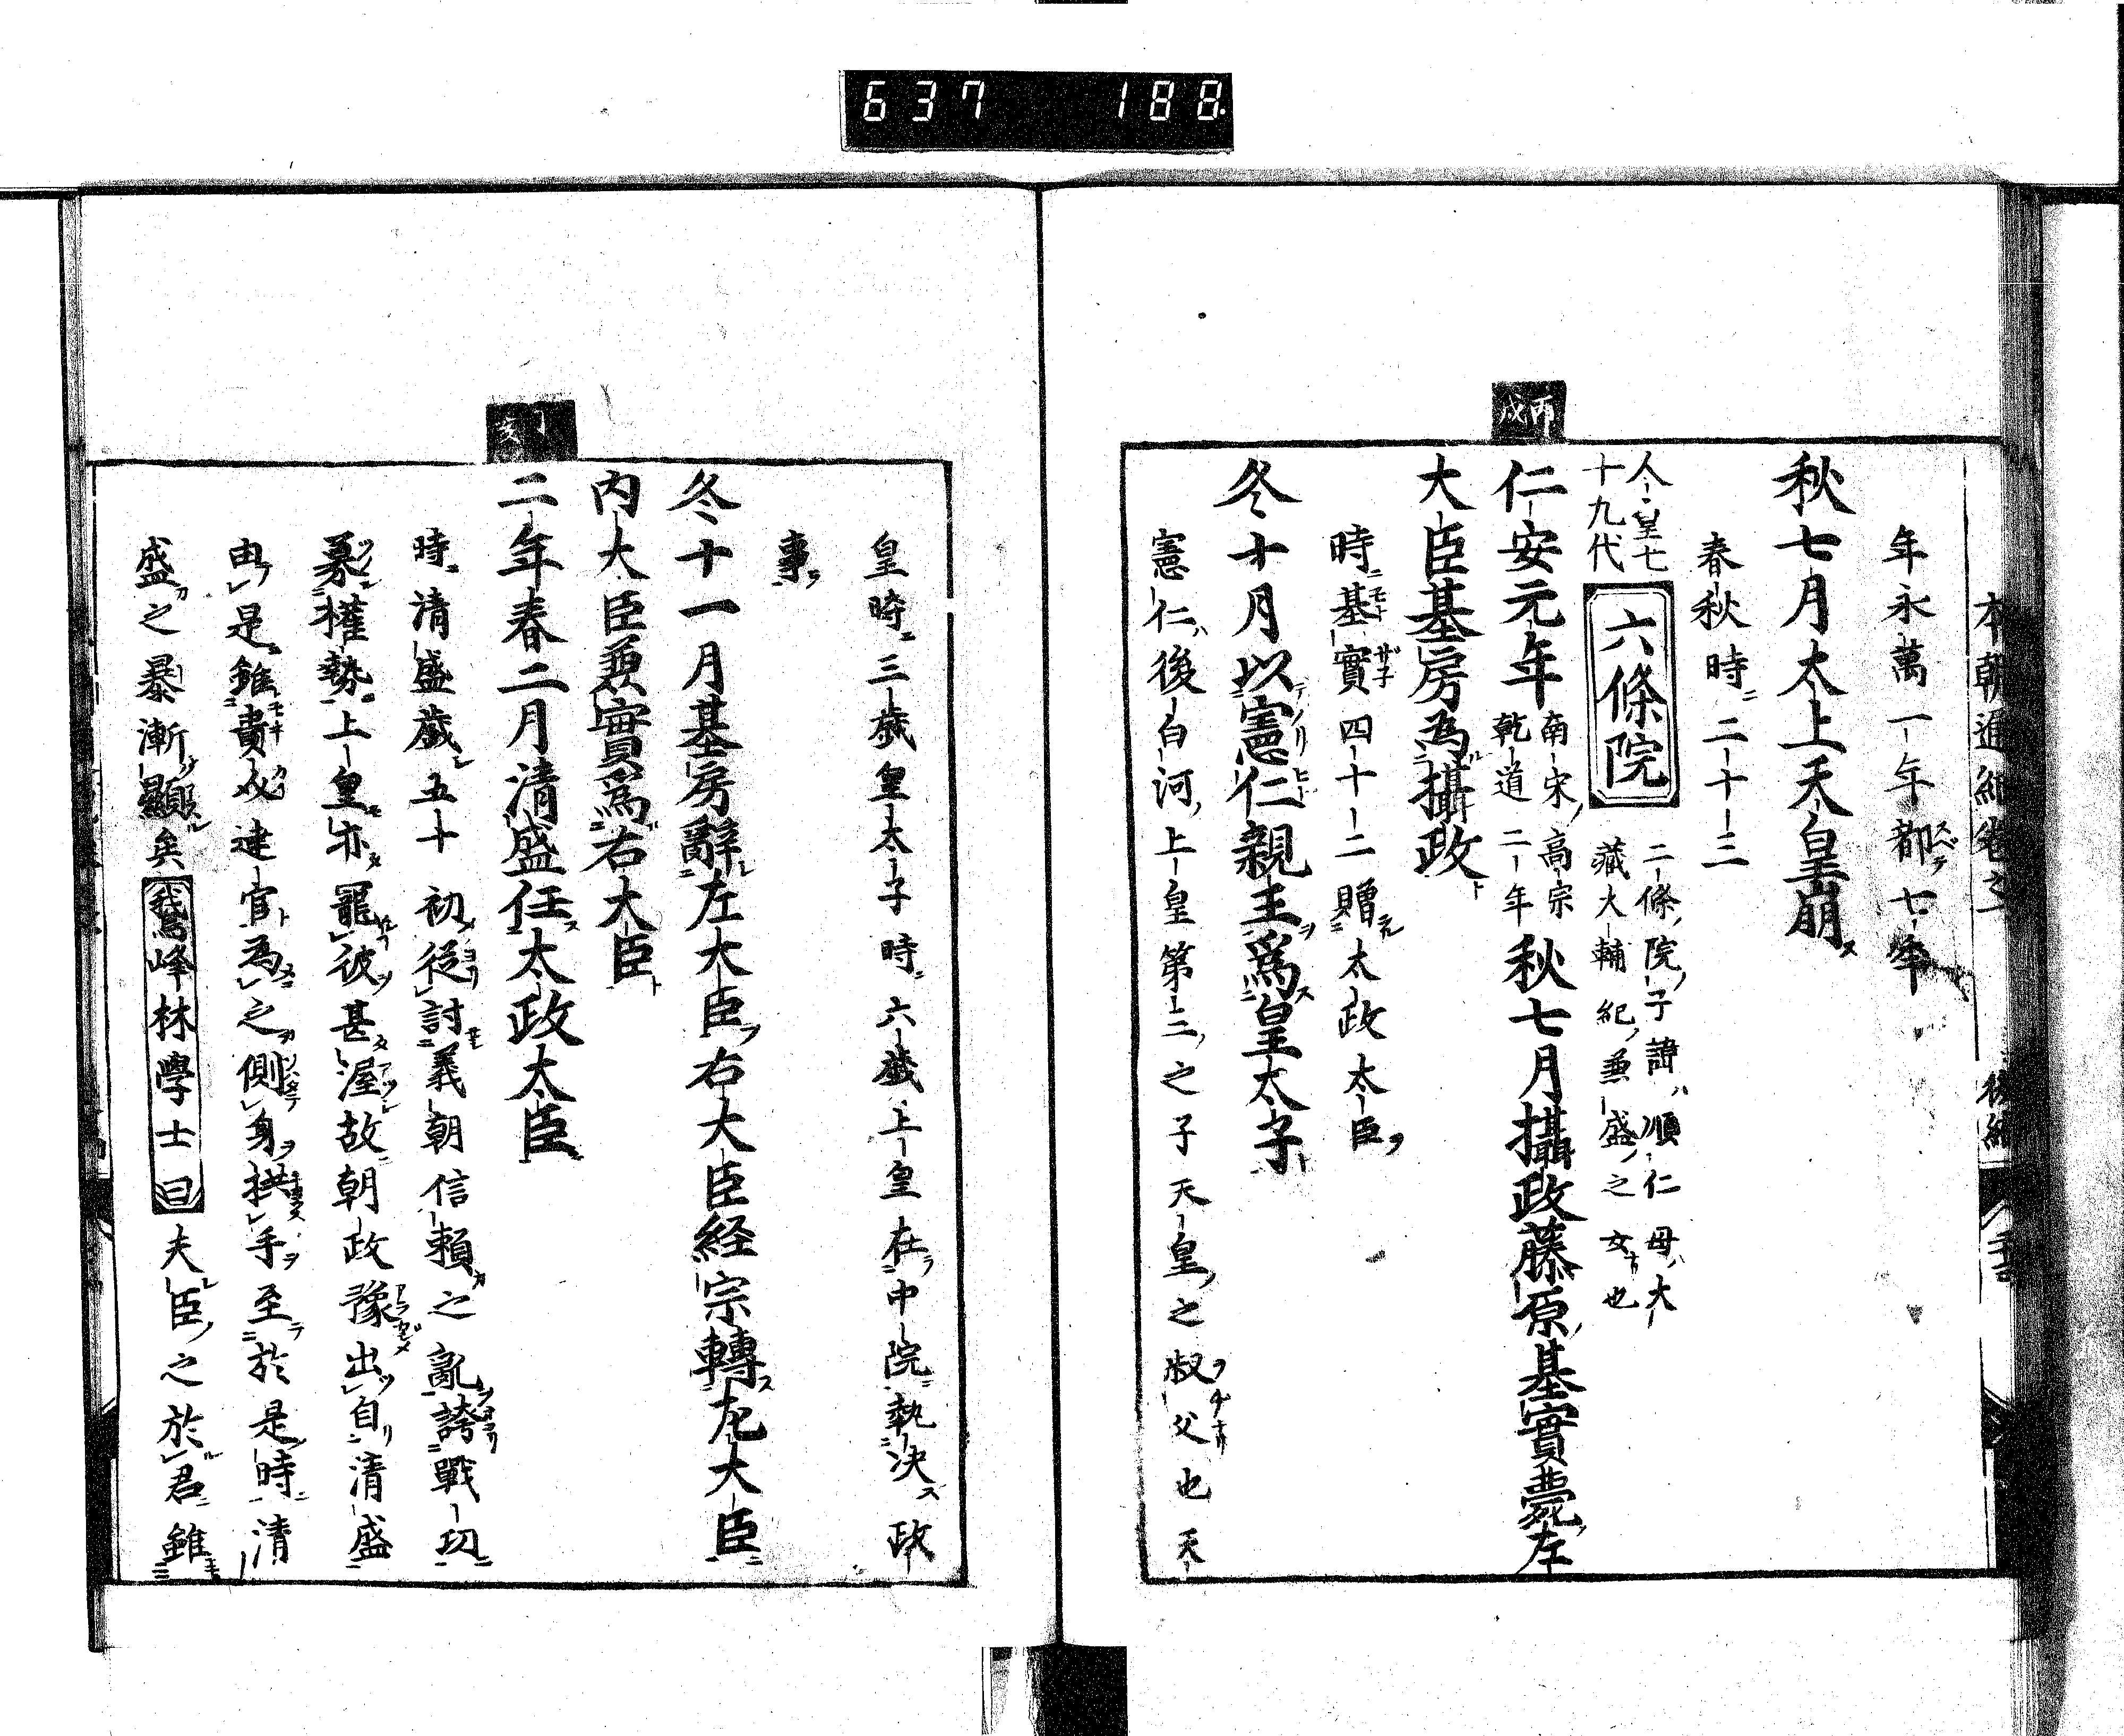 637 188
本朝通紀卷之
後編
年永萬一年都七年
秋七月太上天皇崩
春秋時二十三
人皇七十九代
六條院
二條院子諱順仁母大
藏大輔紀兼盛之女也
丙戌
仁安元年
南宋高宗
乾道二年
秋七月攝政藤原基實薨左
大臣基房為攝政
時基實四十二贈太政太臣
冬十月以憲仁親王爲皇太子
憲仁後白河上皇第三之子天皇之叔父也天
皇時三歲皇太子時六歲上皇在中院執决政
事
冬十一月基房辭左大臣右大臣経宗轉左大臣
內大臣兼實爲右大臣
丁亥
二年春二月清盛任太政太臣
時清盛歲五十初從討義朝信賴之亂誇戰功
募權勢上皇亦寵彼甚渥故朝政豫出自清盛
由是雖貴戚達官為之側身拱手至於是時清
盛之暴漸顯矣
我鵞峰林學士曰
夫臣之於君雖